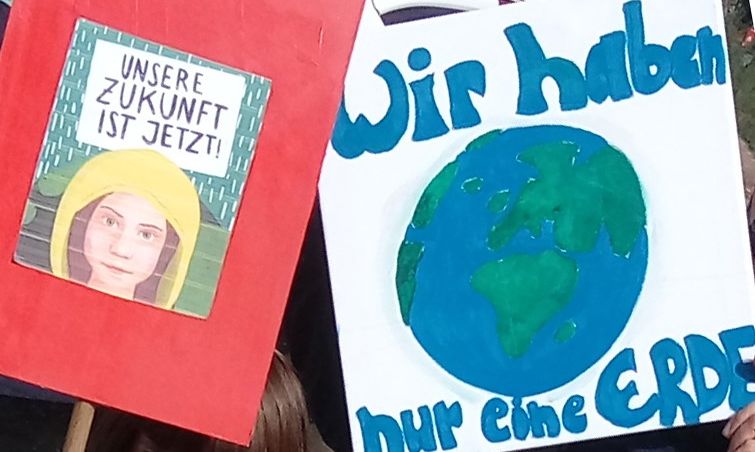 UNSERE
ZUKUNFT
IST JETZT!
Wir haben
nur eine ERDE